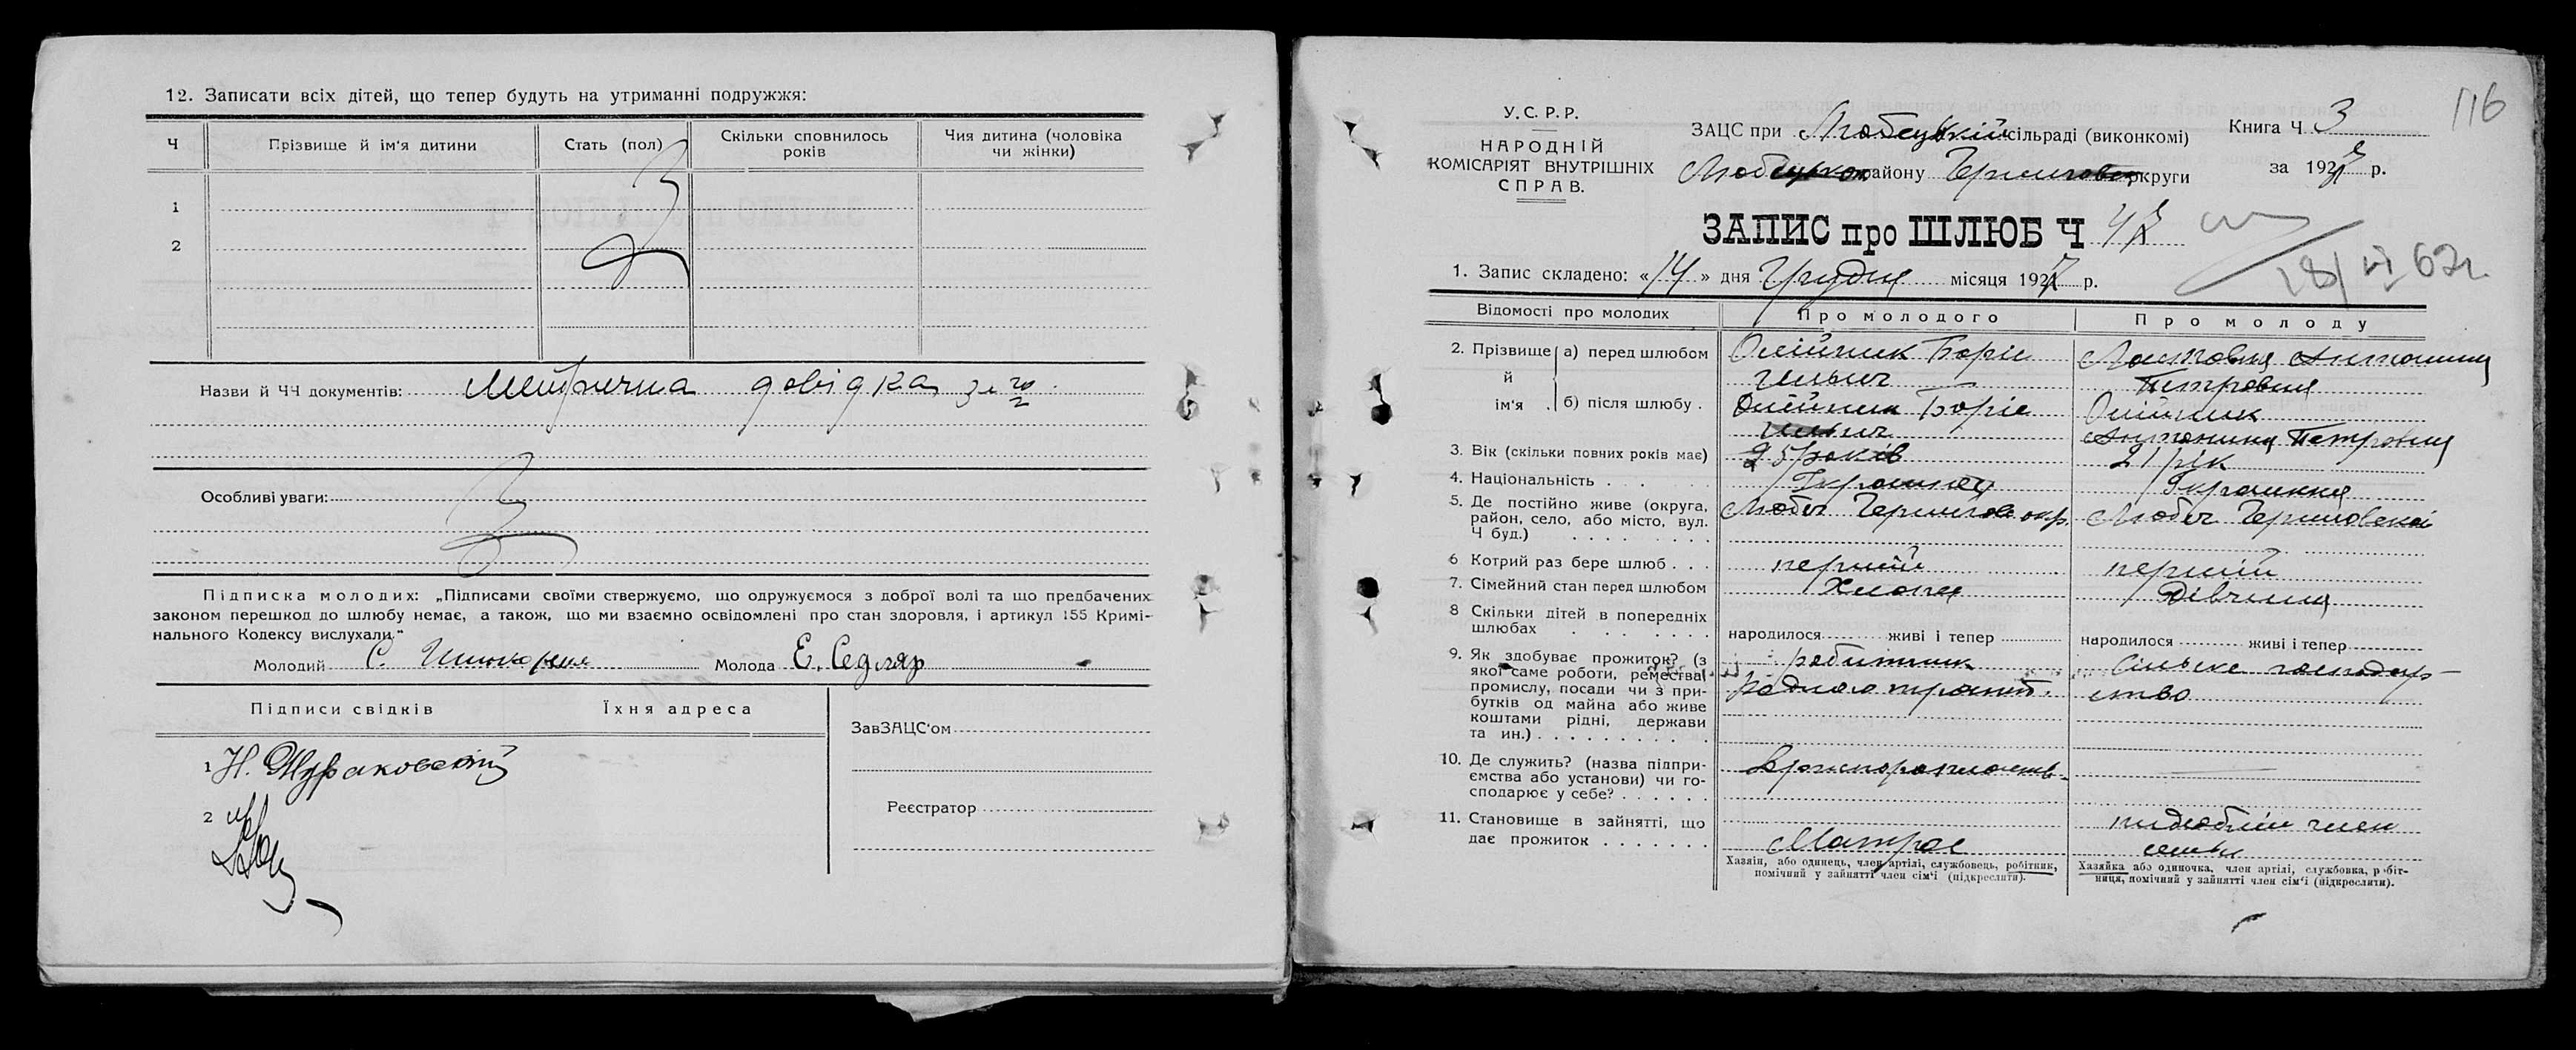 12. Записати всіх дітей, що тепер будуть на утриманні подружжя:
Ч Прізвище й ім'я дитини Стать (пол) Скільки сповнилось років Чия дитина (чоловіка чи жінки)
1
2
Назви й ЧЧ документів: Метрична довідка
Особливі уваги:
Підписка молодих: „Підписами своїми ствержуємо, що одружуємося з доброї волі та що предбачених
законом перешкод до шлюбу немає, а також, що ми взаємно освідомлені про стан здоровля, і артикул 155 Кримі-
нального Кодексу вислухали."
Молодий С. Молода Е. Седляр
Підписи свідків Їхня адреса
1 Н. Жураковский
2
ЗавЗАЦС'ом
Реєстратор
116
У.С.Р.Р.
НАРОДНІЙ
КОМІСАРІЯТ ВНУТРІШНІХ
СПРАВ.
ЗАЦС при Любецькій сільраді (виконкомі)
Любецького району Чернигов. округи
Книга Ч 3
за 192 р.
ЗАПИС про ШЛЮБ Ч 47
1. Запис складено: «14» дня Грудня місяця 1927 р.
Відомості про молодих Про молодого Про молоду
2. Прізвище й ім'я а) перед шлюбом Олійник Боріс Ильич Антонина Петровна
б) після шлюбу Олійник Боріс Ильич Олійник Антонина Петровна
3. Вік (скільки повних років має) 25 років 21 рік
4. Національність Украинец Украинка
5. Де постійно живе (округа, район, село, або місто, вул. Ч буд.) Любеч Чернигов окр. Любеч Черниговской
6 Котрий раз бере шлюб перший перший
7. Сімейний стан перед шлюбом Хлопец Дівчина
8 Скільки дітей в попередніх шлюбах народилося живі і тепер народилося живі і тепер
9. Як здобуває прожиток? (з якої саме роботи, ремества, промислу, посади чи з прибутків од майна або живе коштами рідні, держави та ин.) робитник водного трансп. Сільске господарство
10. Де служить? (назва підприємства або установи) чи господарює у себе?
11. Становище в зайнятті, що дає прожиток Матрос член семьи
Хазяїн, або одинець, член артілі, службовець, робітник,
помічний у зайнятті член сім'ї (підкреслити).
Хазяйка або одиночка, член артілі, службовка, робіт-
ниця, помічний у зайнятті член сім'ї (підкреслити).